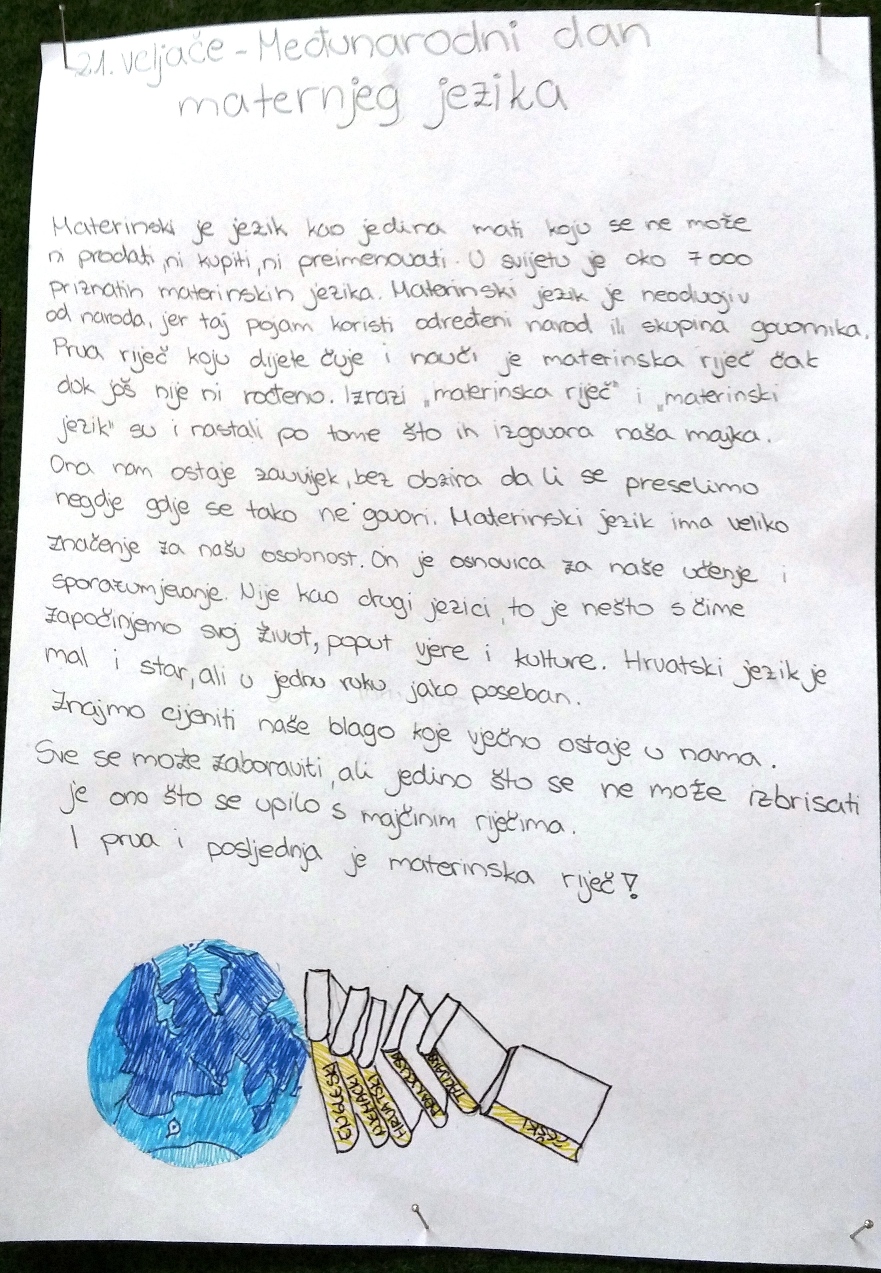 21. veljače - Međunarodni dan
maternjeg jezika
Materinski je jezik kao jedina mati koju se ne može
ni prodati, ni kupiti, ni preimenovati. U svijetu je oko 7000
priznatih materinskih jezika. Materinski jezik je neodvojiv
od naroda, jer taj pojam koristi određeni narod ili skupina govornika.
Prva riječ koju dijete čuje i nauči je materinska riječ čak
dok još nije ni rođeno. Izrazi „materinska riječ" i „materinski
jezik" su i nastali po tome što ih izgovara naša majka.
Ona nam ostaje zauvijek, bez obzira da li se preselimo
negdje gdje se tako ne govori. Materinski jezik ima veliko
značenje za našu osobnost. On je osnovica za naše učenje i
sporazumjevanje. Nije kao drugi jezici, to je nešto s čime
započinjemo svoj život, poput vjere i kulture. Hrvatski jezik je
mal i star, ali u jednu ruku jako poseban.
Znajmo cijeniti naše blago koje vječno ostaje u nama.
Sve se može zaboraviti, ali jedino što se ne može izbrisati
je ono što se upilo s majčinim riječima.
I prva i posljednja je materinska riječ!
ENGLESKI
NJEMAČKI
HRVATSKI
ČEŠKI